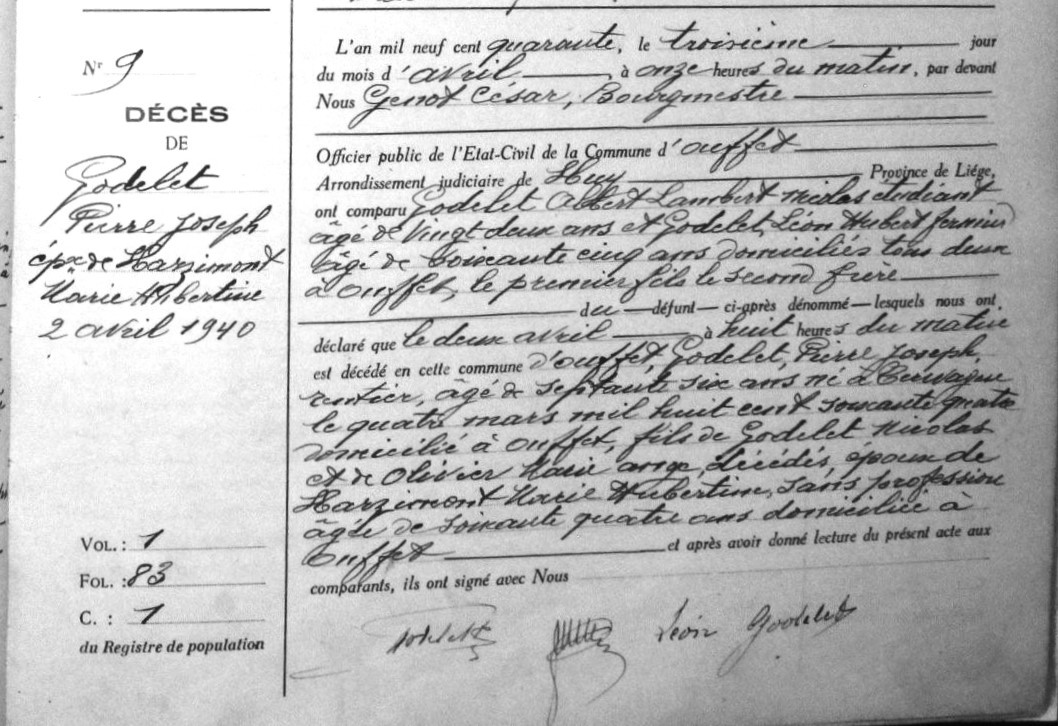 Nr 9
DÉCÈS
DE
Godelet
Pierre Joseph
épx de Harzimont
Marie Hubertine
2 avril 1940
VOL. : 1
FOL. : 83
C. : 1
du Registre de population
L'an mil neuf cent quarante, le troisième jour
du mois d'avril, à onze heures du matin, par devant
Nous Genot César, Bourgmestre
Officier public de l'Etat-Civil de la Commune d'Ouffet
Arrondissement judiciaire de Huy Province de Liége,
ont comparu Godelet Albert Lambert Nicolas étudiant
âgé de vingt deux ans et Godelet, Léon Hubert fermier
âgé de soixante cinq ans domiciliés tous deux
à Ouffet, le premier fils le second frère
du défunt ci-après dénommé lesquels nous ont
déclaré que le deux avril à huit heures du matin
est décédé en cette commune d'Ouffet, Godelet, Pierre Joseph,
rentier, âgé de septante six ans né à
le quatre mars mil huit cent soixante quatre
domicilié à Ouffet, fils de Godelet Nicolas
et de Olivier Marie ange, décédés, époux de
Harzimont Marie Hubertine, sans profession
âgée de soixante quatre ans domiciliée à
Ouffet et après avoir donné lecture du présent acte aux
comparants, ils ont signé avec Nous
Léon Godelet